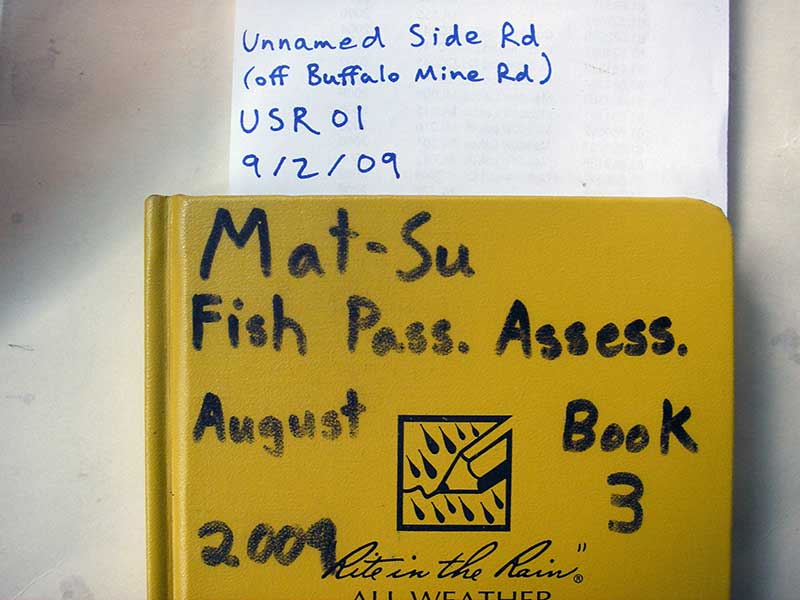 Unnamed Side Rd
(off Buffalo Mine Rd)
USR01
9/2/09
Mat-Su
Fish Pass. Assess.
August Book
3
2009
Rite in the Rain®
ALL-WEATHER